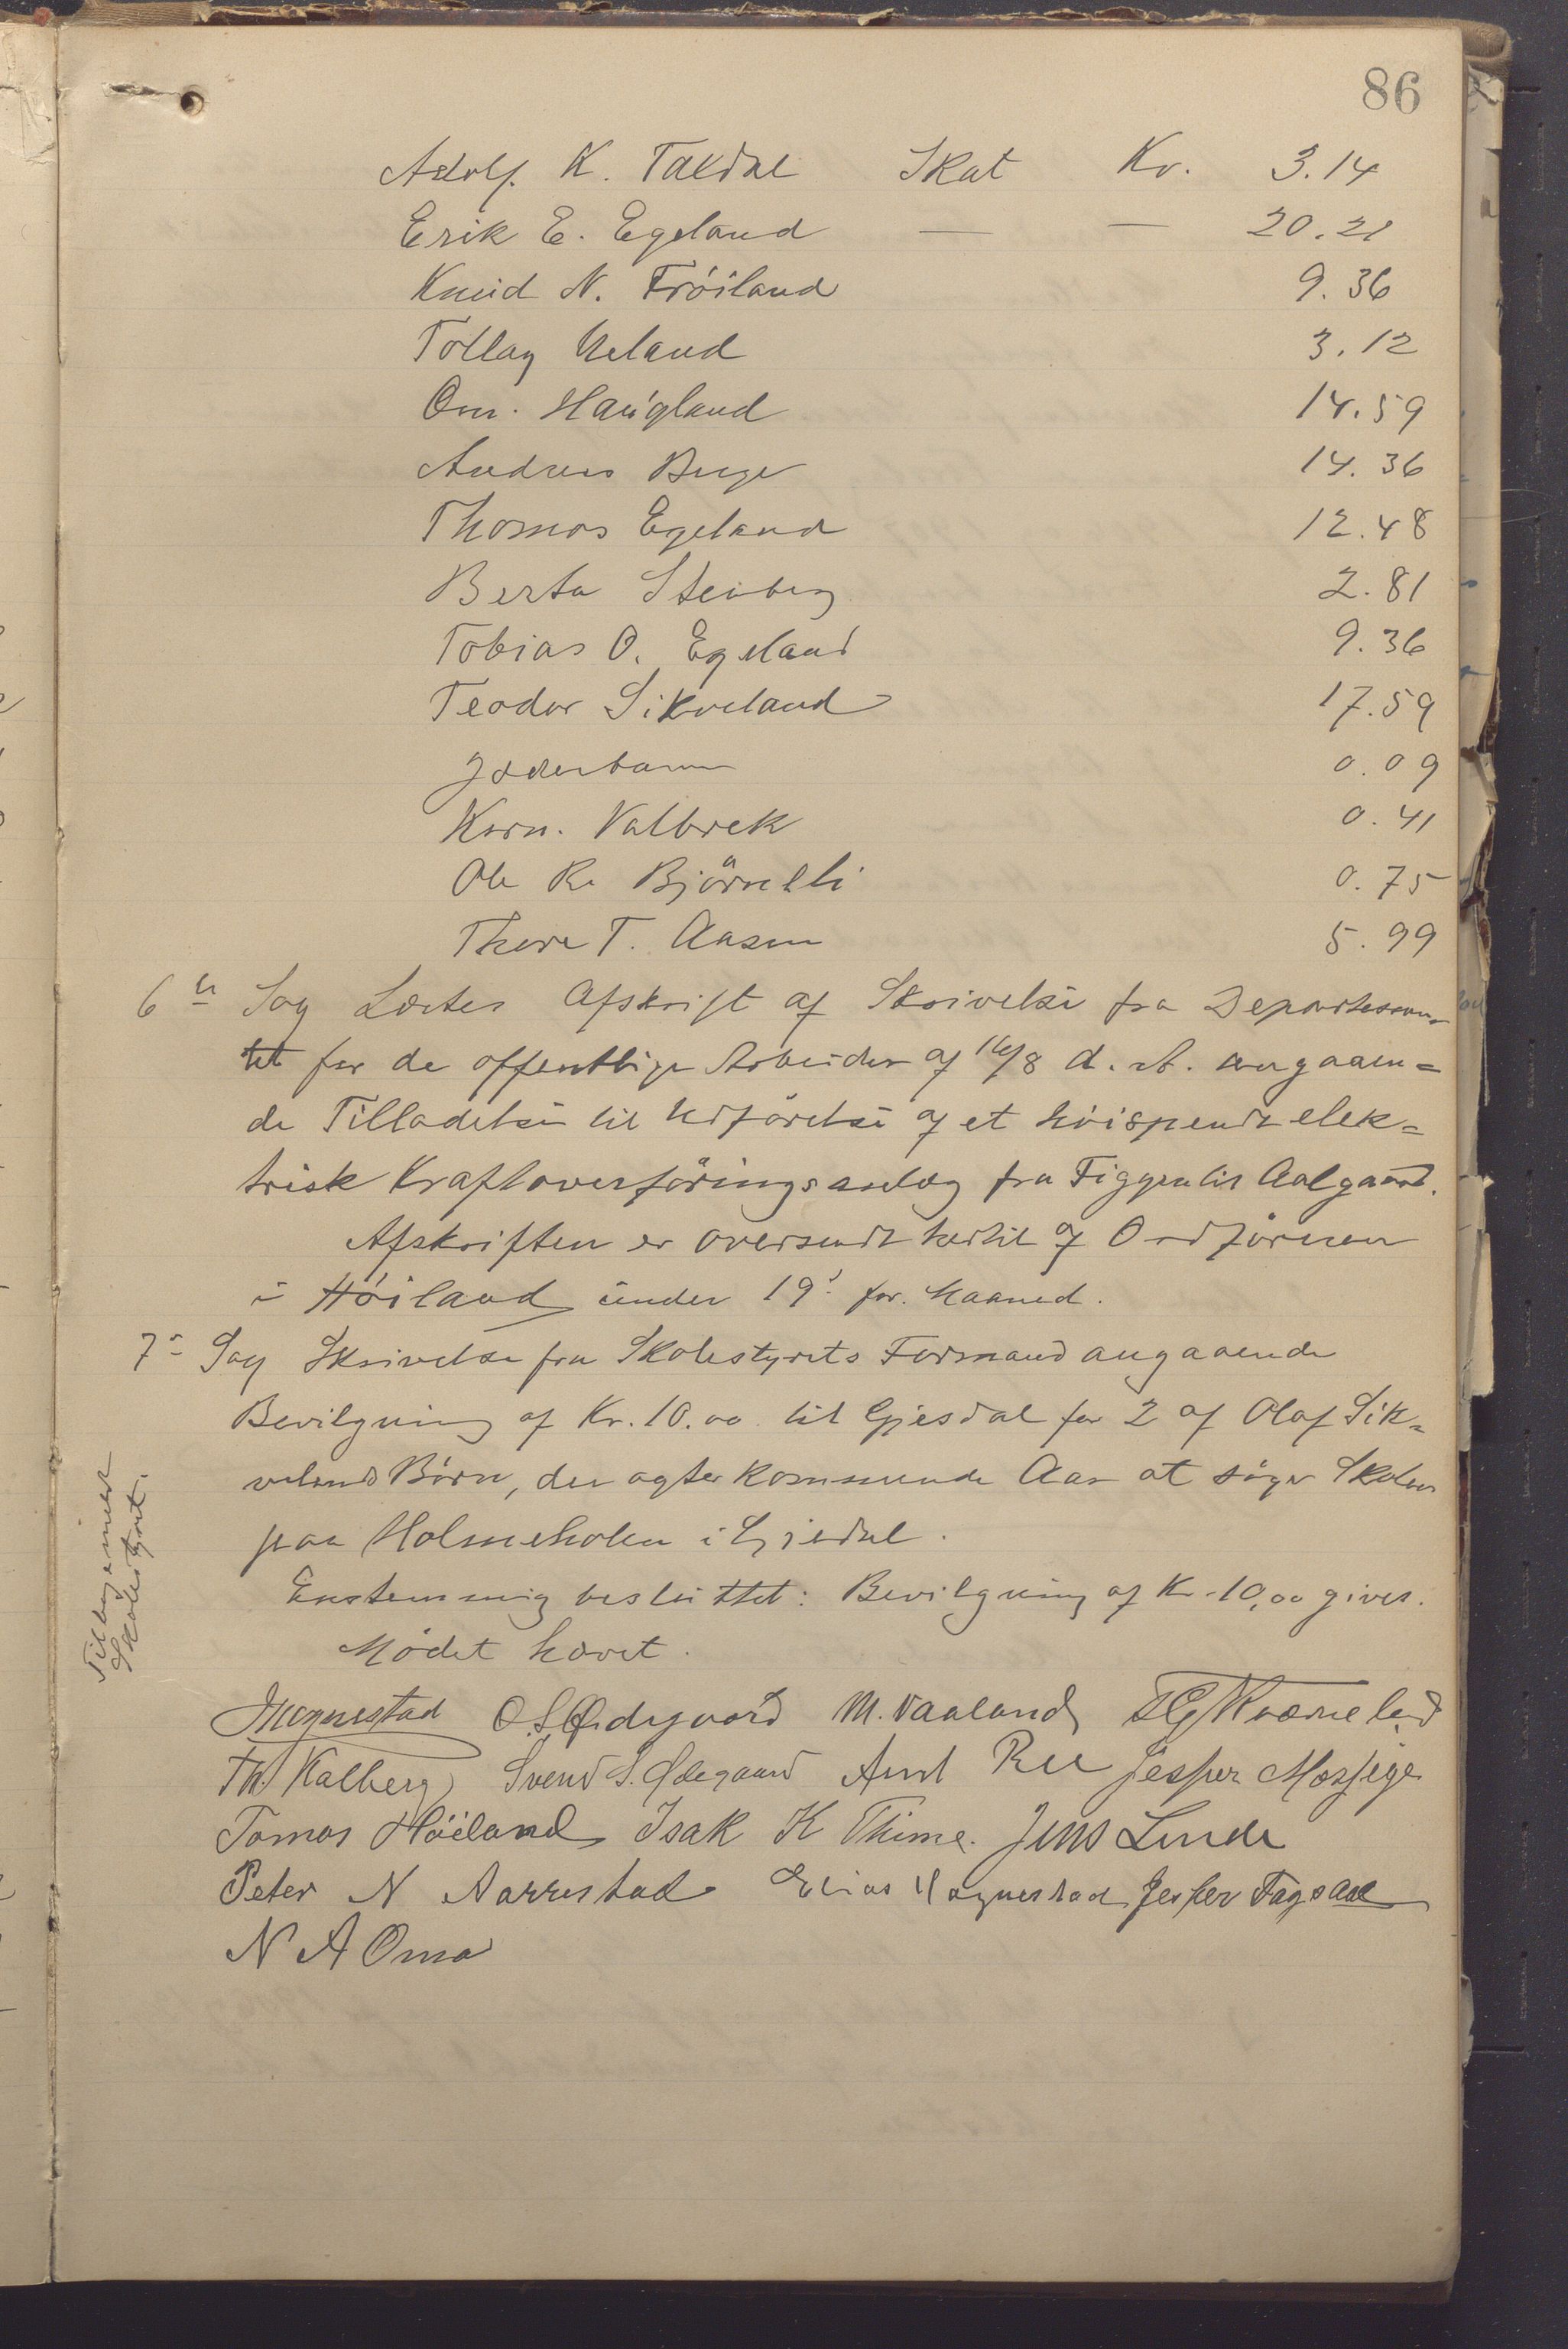 86
Adolf. K. Taxdal Skat Kr. 3.14
Erik E. Egeland — — 20.21
Knud N. Fröiland 9.36
Tollag Ueland 3.12
Om. Haugland 14.59
Andreas Berge 14.36
Thomas Egeland 12.48
Berta Steinberg 2.81
Tobias O. Egeland 9.36
Teodor Sikveland 17.59
Jæderbanen 0.09
Korn. Valbrek 0.41
Ole R. Björnelli 0.75
Thore T. Aasen 5.99
6te Sag Læstes Afskrift af Skrivelse fra Departemen-
tet for de offentlige Arbeider af 16/8 d. A. angaaen=
de Tilladelse til Udförelse af et höispendt elek=
trisk Kraftoverföringsanlæg fra Figgen til Aalgaard.
Afskriften er oversendt hertil af Ordföreren
i Höiland under 19' for. Maaned.
7- Sag Skrivelse fra Skolestyrets Formand angaaende
Bevilgning af Kr. 10.00 til Gjesdal for 2 af Olaf Sik=
velands Börn, der agter kommende Aar at söge Skolen
paa Holmeskolen i Gjesdal.
Enstemmig besluttet: Bevilgning af Kr. 10,00 gives.
Mödet hævet.
Tilbagemeldt
Skolestyret.
Mognestad O. S. Ødegaard M. Vaaland T G Kværneland
Th. Kalberg Svend S. Ødegaard Arnt Ree Jesper Mossige
Tomas Höiland Isak K Thime. Jens Lende
Peter N Aarrestad Elias Mognestad Jesper Fagsaae
N A Oma